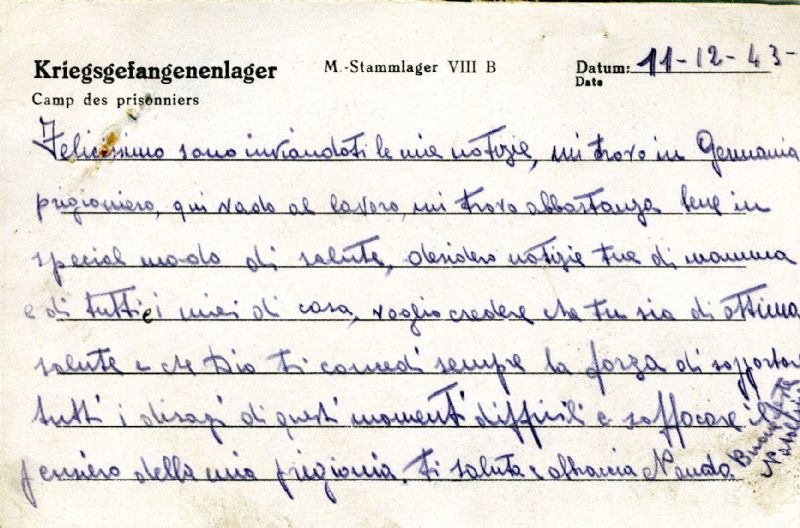 Kriegsgefangenenlager M.-Stammlager VIII B Datum: 11-12-43-
Camp des prisonniers Date
Felicissimo sono inviandoti le mie notizie, mi trovo in Germania
prigioniero, qui vado al lavoro, mi trovo abbastanza bene in
special modo di salute, desidero notizie tue di mamma
e di tutti i miei di casa, voglio credere che tu sia di ottima
salute e che Dio ti concedi sempre la forza di sopportare
tutti i disagi di questi momenti difficili e soffocare il
pensiero della mia prigionia. Ti saluta e abbraccia Nando
Buone feste
Natalizie